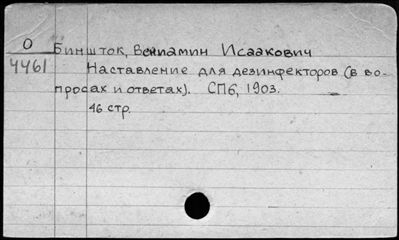 О
4461
Биншток, Вениамин Исаакович
Наставление для дезинфекторов (в во-
просах и ответах). СПб, 1903.
46 стр.